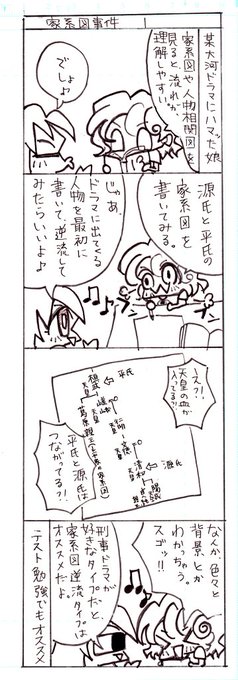 家系図事件 1
某大河ドラマにハマッた娘
家系図や人物相関図を
見ると、流れが
理解しやすい。
でしょ♪
源氏と平氏の
家系図を
書いてみる。
じゃあ、
ドラマに出てくる
人物を最初に
書いて、逆流して
みたらいいよ♪
え?!
天皇の血が
入ってる?!
平氏
源氏
平氏と源氏は
つながってる?!
なんか、色々と
背景とか
わかっちゃう。
スゴッ!!
刑事ドラマが
好きなタイプだと、
家系図逆流タイプは
オススメだよ。
テスト勉強でもオススメ